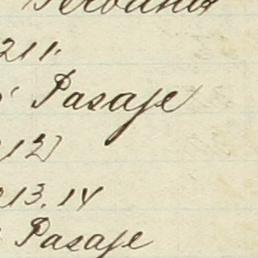 211.
Pasaje
212
213.14
Pasaje